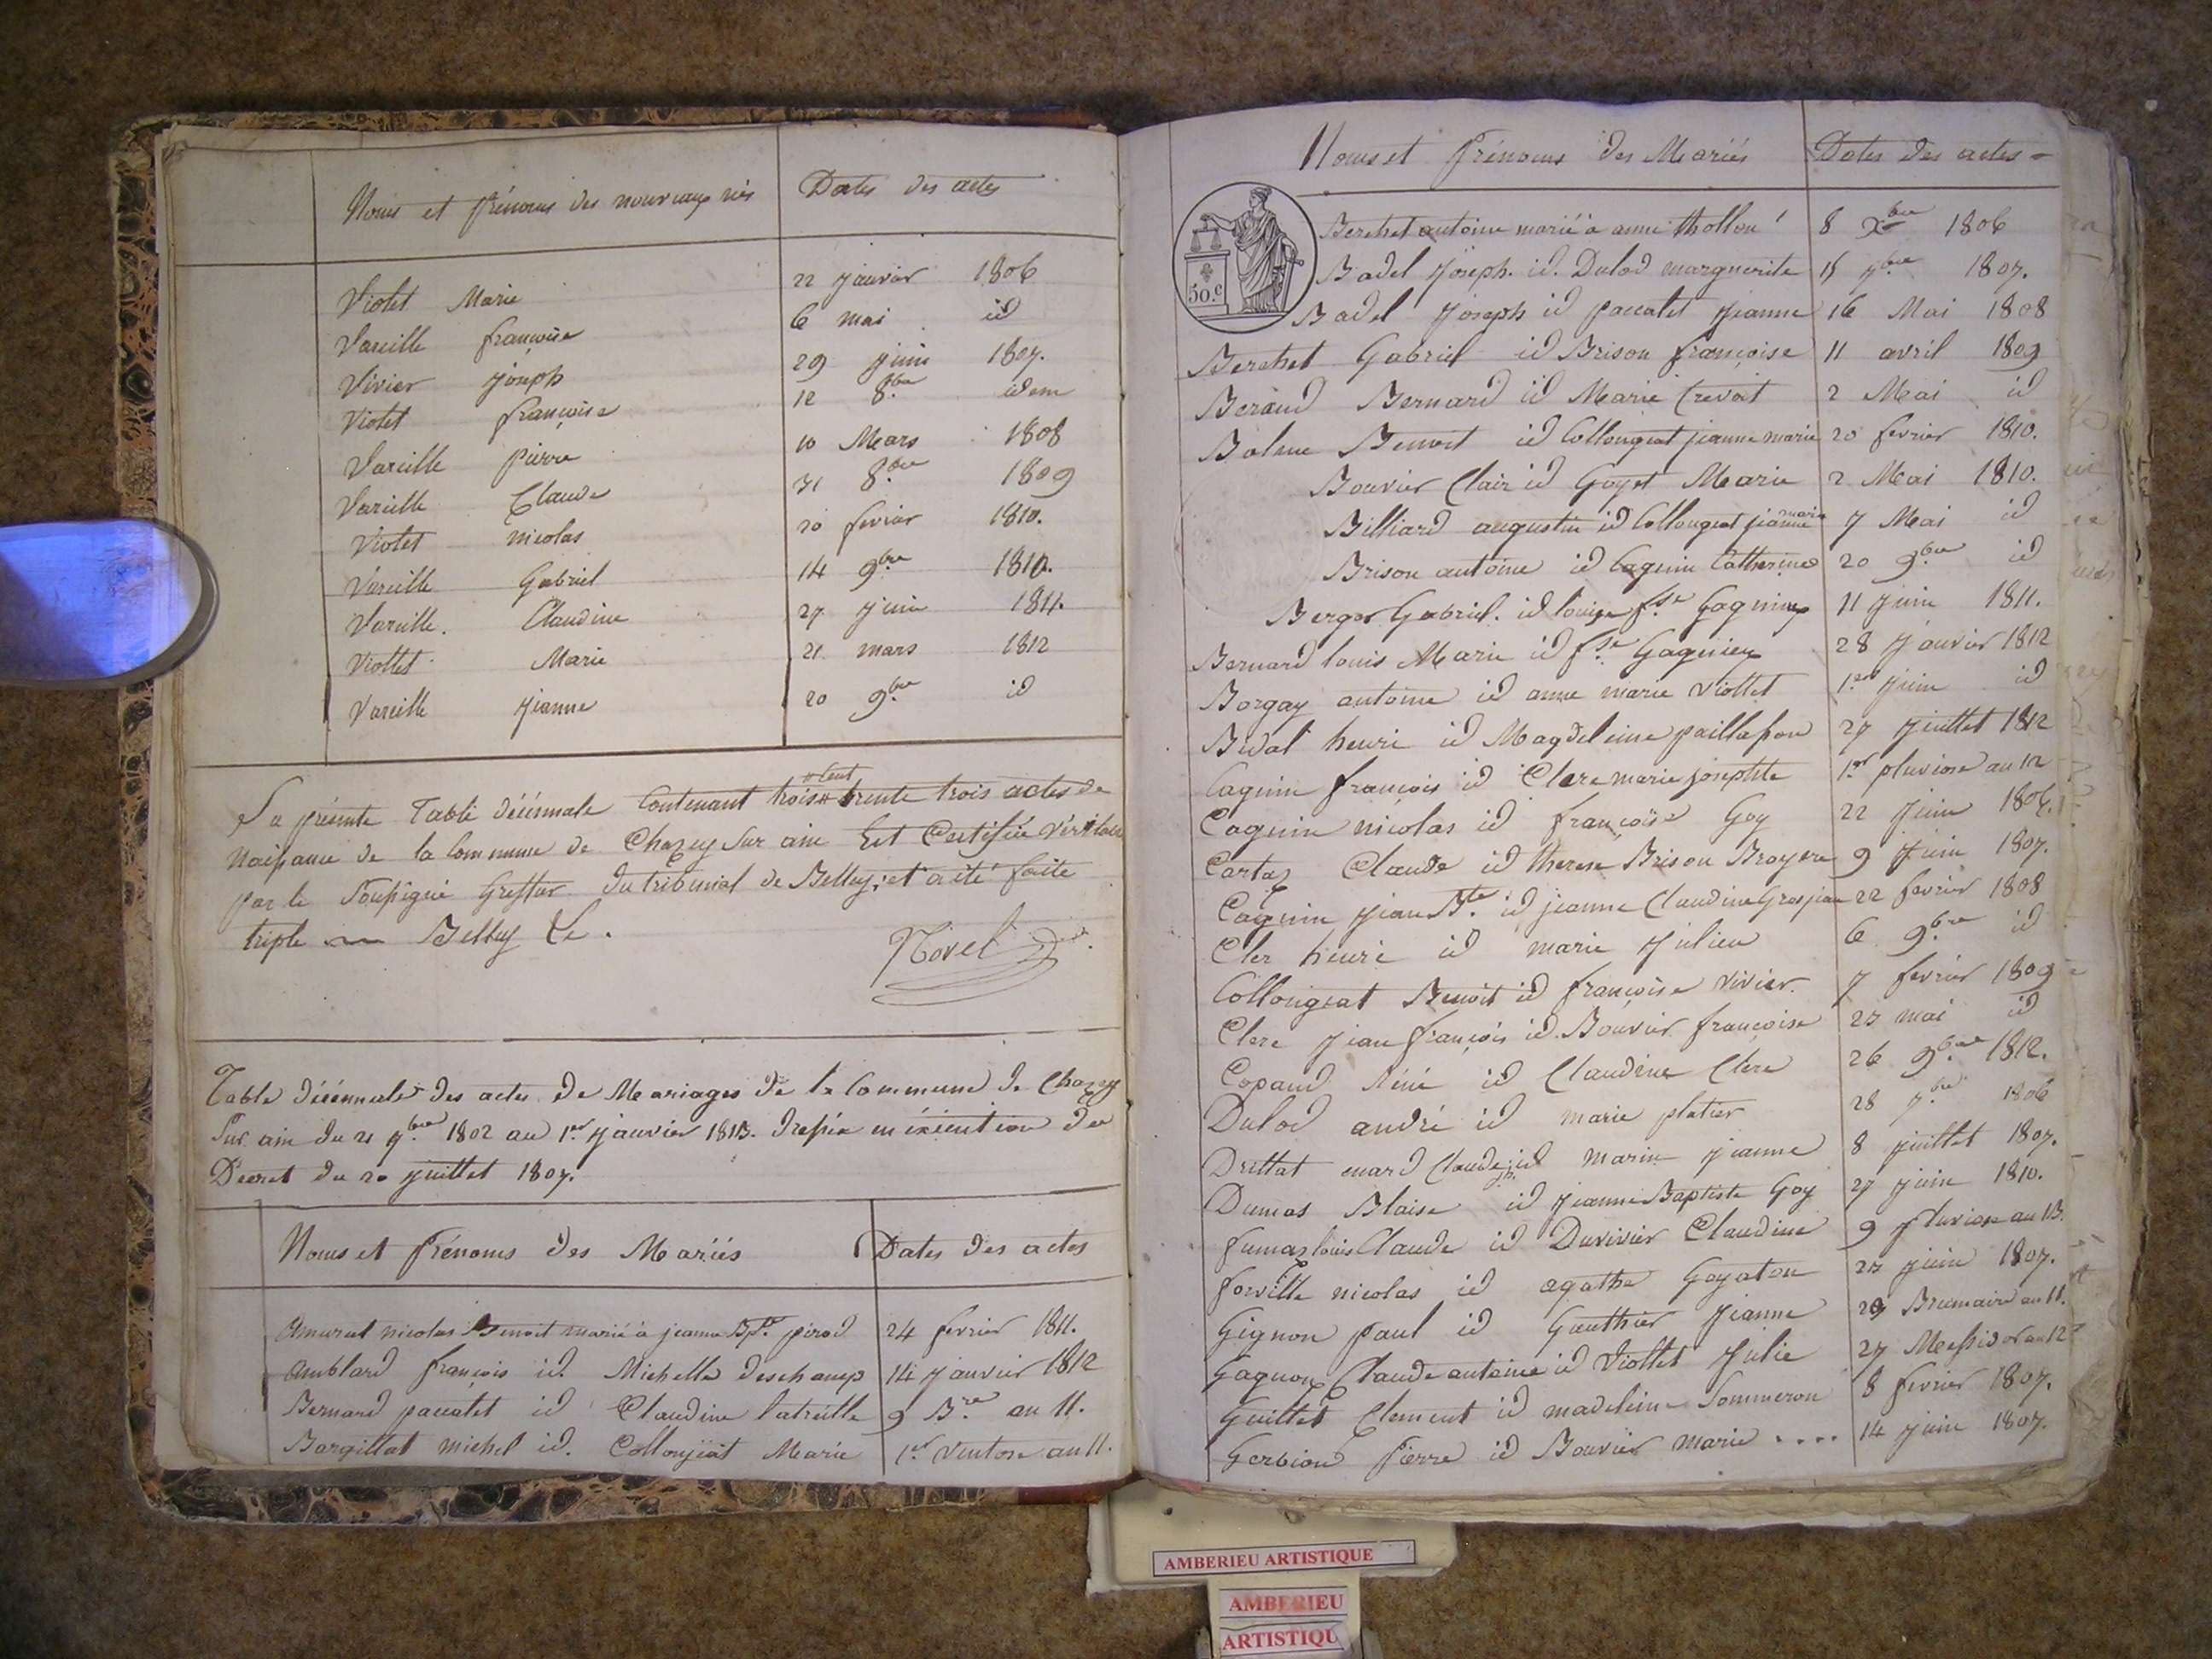 Noms et prénoms des nouveaux nés Dates des actes
Violet Marie 22 janvier 1806
Vareille françoise 6 mai id
Vivier joseph 29 juin 1807.
Violet françoise 12 8.bre idem
Vareille pierre 10 Mars 1808
Vareille Claude 31 8.bre 1809
Violet nicolas 20 fevrier 1810.
Vareille Gabriel 14 9bre 1810.
Vareille. Claudine 27 juin 1811.
Viollet Marie 21 mars 1812
Vareille jeanne 20 9.bre id
La présente Table décennale Contenant trois cent trente trois actes de
Naissance de la Commune de Chazey Sur ain Est Certifiée Véritable
par le Soussigné Greffier du tribunal de Belley, et a été faite
triple Belley Le.
Novel
Table décennale des actes de Mariages de la Commune de Chazey
Sur ain du 21 7.bre 1802 au 1.er janvier 1813. Dressée en éxécution du
Decret du 20 juillet 1807.
Noms et prénoms des Mariés Dates des actes
nicolas Benoit marié à jeanne B.te pirod 24 fevrier 1811.
Amblard françois id. Michelle deschamp 14 janvier 1812
Bernard paccalet id Claudine latreille 9 B.re an 11.
Bargillat michel id. Collonjiat Marie 1.er Ventose an 11.
Noms et prénoms des Mariés Dates des actes
50.c
Berchet antoine marié à anne thollon 8 Xbre 1806
Badel joseph. id. Dulod marguerite 15 7bre 1807.
Badel joseph id paccalet jeanne 16 Mai 1808
Berchet Gabriel id Brison françoise 11 avril 1809
Beraud Bernard id Marie Crevat 2 Mai id
Balme Benoit id Collongeat jeanne marie 20 fevrier 1810.
Bouvier Clair id Goyet Marie 2 Mai 1810.
Billiard augustin id Collongeat jeanne marie 7 Mai id
Brison antoine id Caguin Catherine 20 9.bre id
Berger Gabriel. id louise f.se Gagnieux 11 juin 1811.
Bernard louis Marie id f.se Gagnieux 28 janvier 1812
Borgay antoine id anne marie Viollet 1.er juin id
Bidal henri id Magdeleine paillasson 27 juillet 1812
Caguin françois id Clere marie josephte 1.er pluviose an 12
Caguin nicolas id françoise Goy 22 juin 1806.
Cartaz Claude id therese Brison Broyere 9 juin 1807.
Caguin jean B.te id jeanne Claudine Grosjean 22 fevrier 1808
Cler henri id marie julien 6 9.bre id
Collongeat Benoit id françoise vivier 7 fevrier 1809
Clere jean françois id Bouvier françoise 23 mai id
Copand Réné id Claudine Clere 26 9.bre 1812.
Dulod andré id marie platier 28 7.bre 1806
Druttat Claude id marin jeanne 8 juillet 1807.
Dumas Blaise id jeanne Baptiste Goy 27 juin 1810.
fumaz louis Claude id Duvivier Claudine 9 pluviose an 13.
forville nicolas id agathe Goyaton 23 juin 1807.
Gignon paul id Gauthier jeanne 29 Brumaire an 11.
Gagnon Claude antoine id Viollet julie 27 Messidor an 12
Guillet Clement id madeleine Sommeron 8 fevrier 1807.
Gerbion Pierre id Bouvier marie .... 14 juin 1807.
AMBERIEU ARTISTIQUE
AMBERIEU
ARTISTIQU